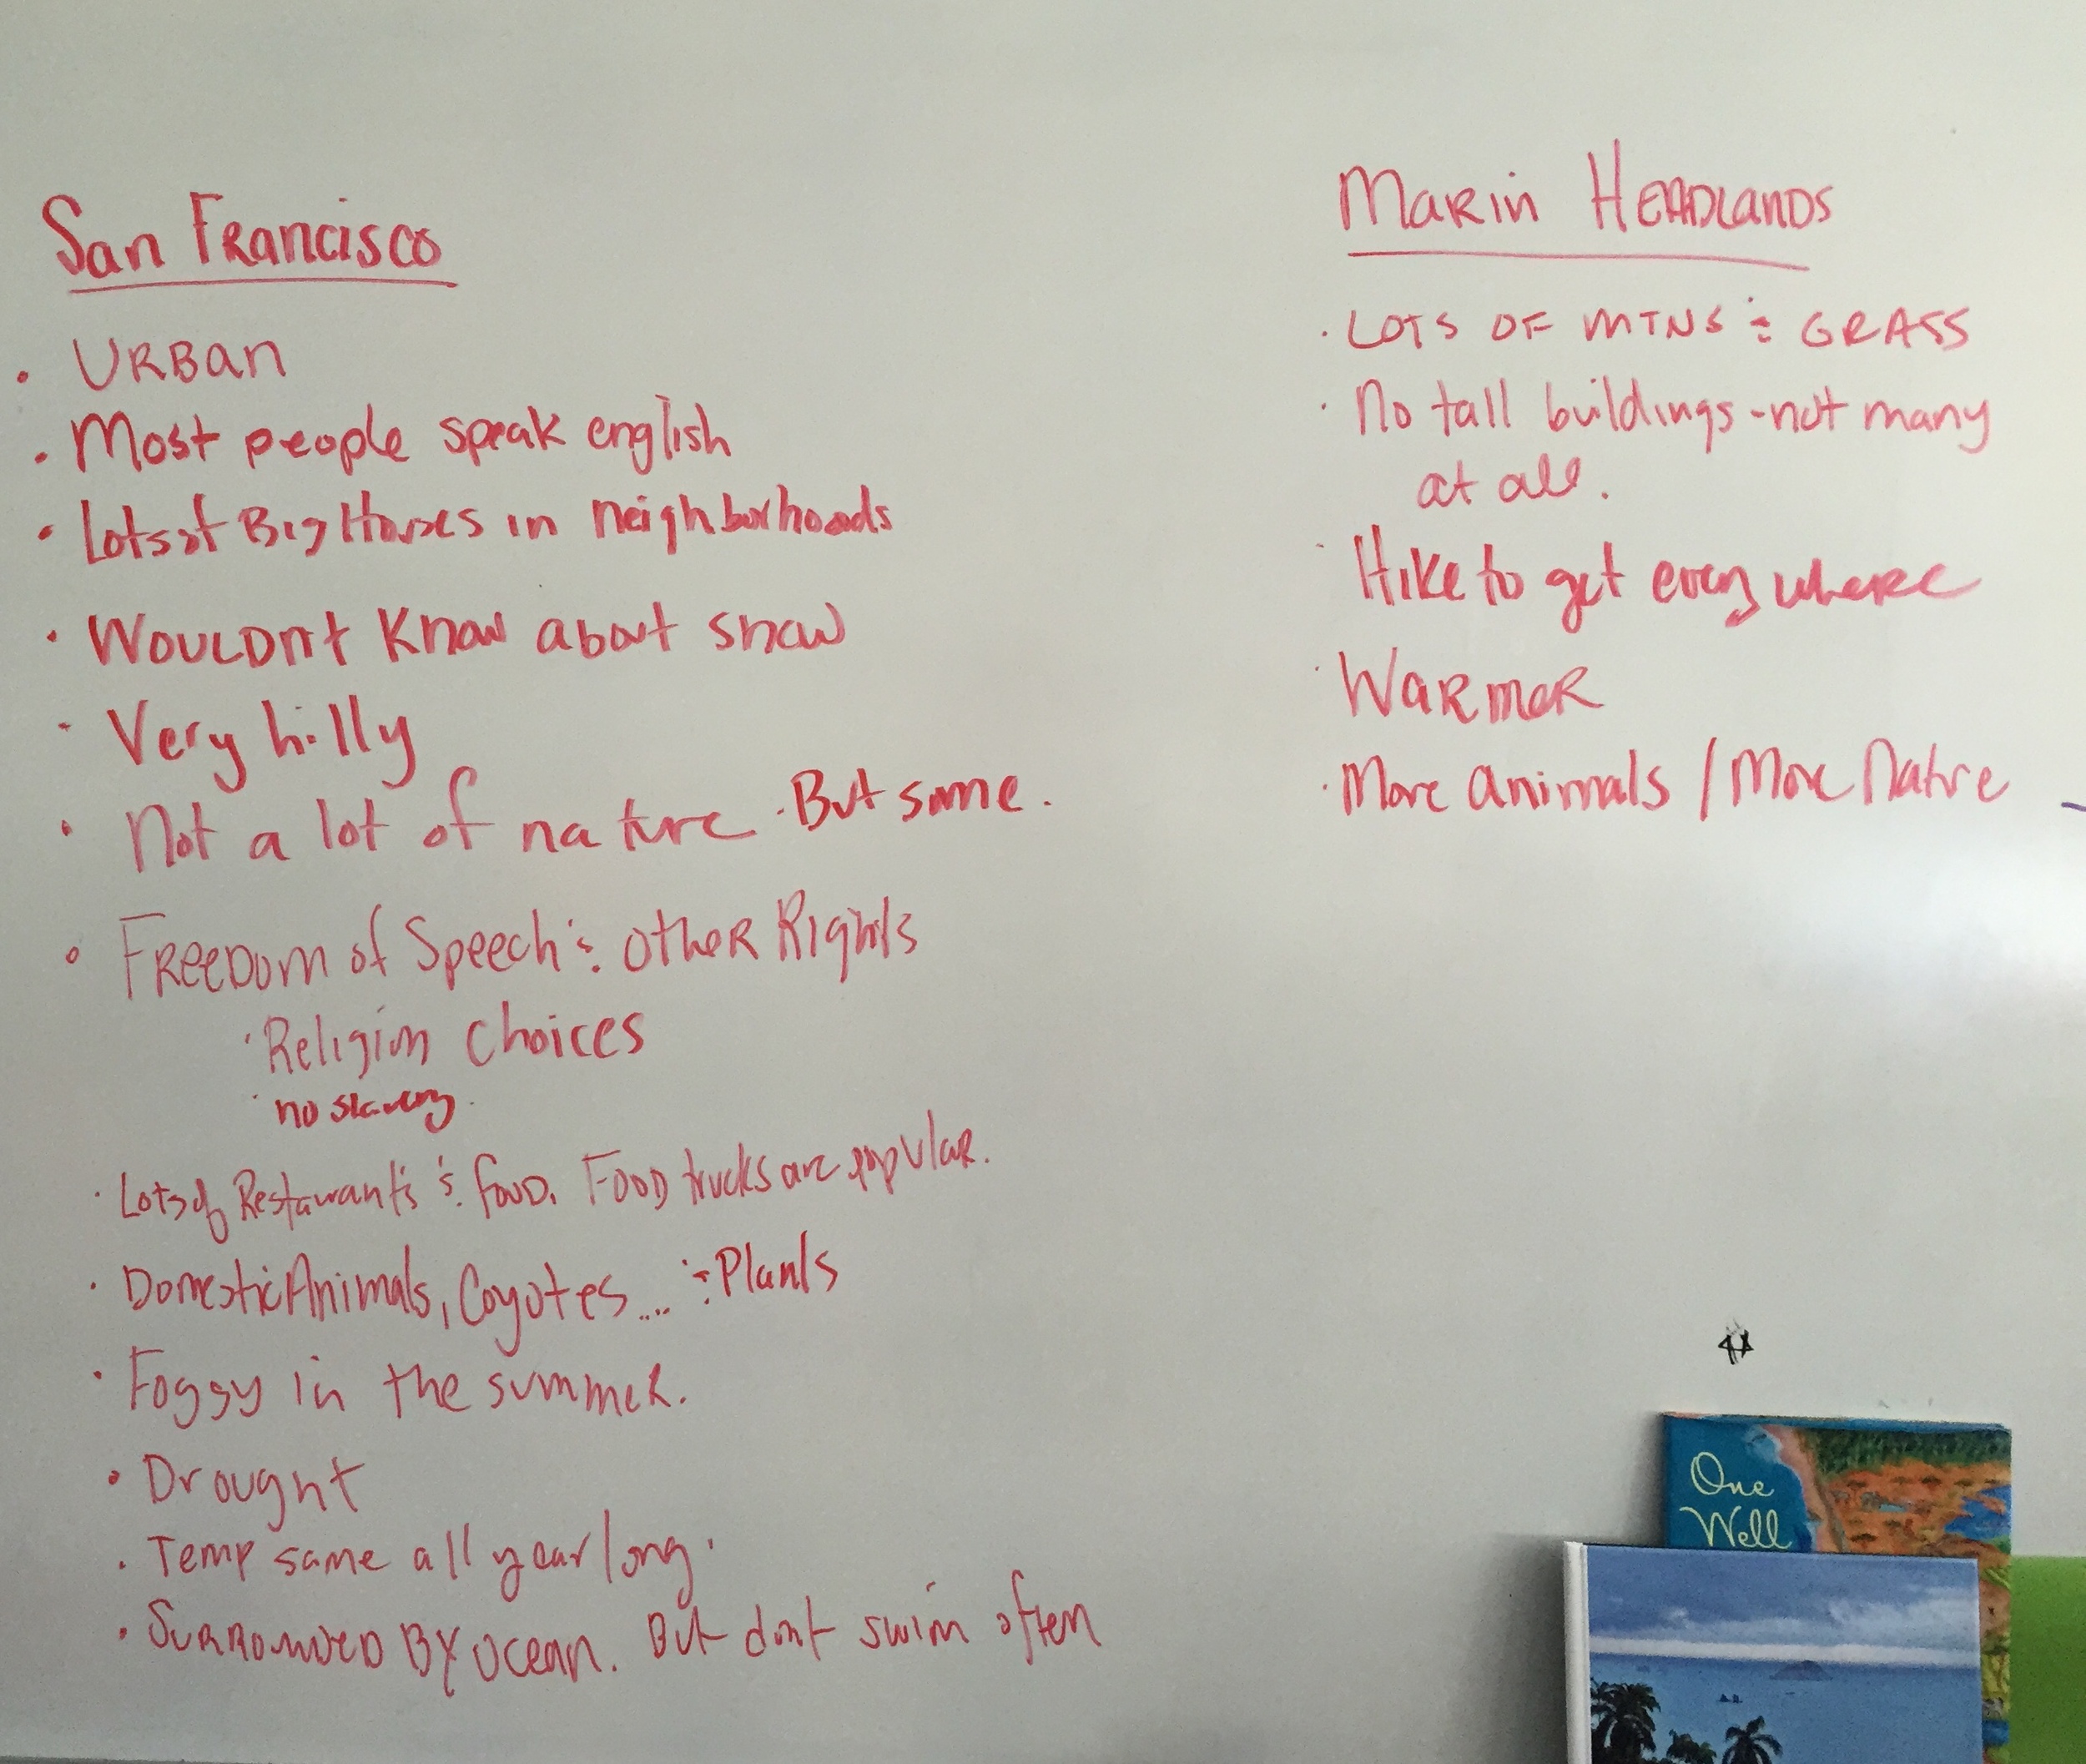 San Francisco
• URBan
• Most people speak english
• Lots of Big Houses in neighborhoods
• WOULDn't Know about snow
• Very hilly
• Not a lot of nature. But some.
• FReeDom of Speech & other Rights
• Religion Choices
• no slavery.
• Lots of Restaurants & food. Food trucks are popular.
• Domestic Animals, Coyotes .... & Plants
• Foggy in the summer.
• Drought
• Temp same all year long.
• Surrounded By ocean. But dont swim often
Marin Headlands
• LOTS OF MTNS & GRASS
• No tall buildings - not many
at all.
• Hike to get everywhere
• Warmer
• More animals / More Nature
One
Well